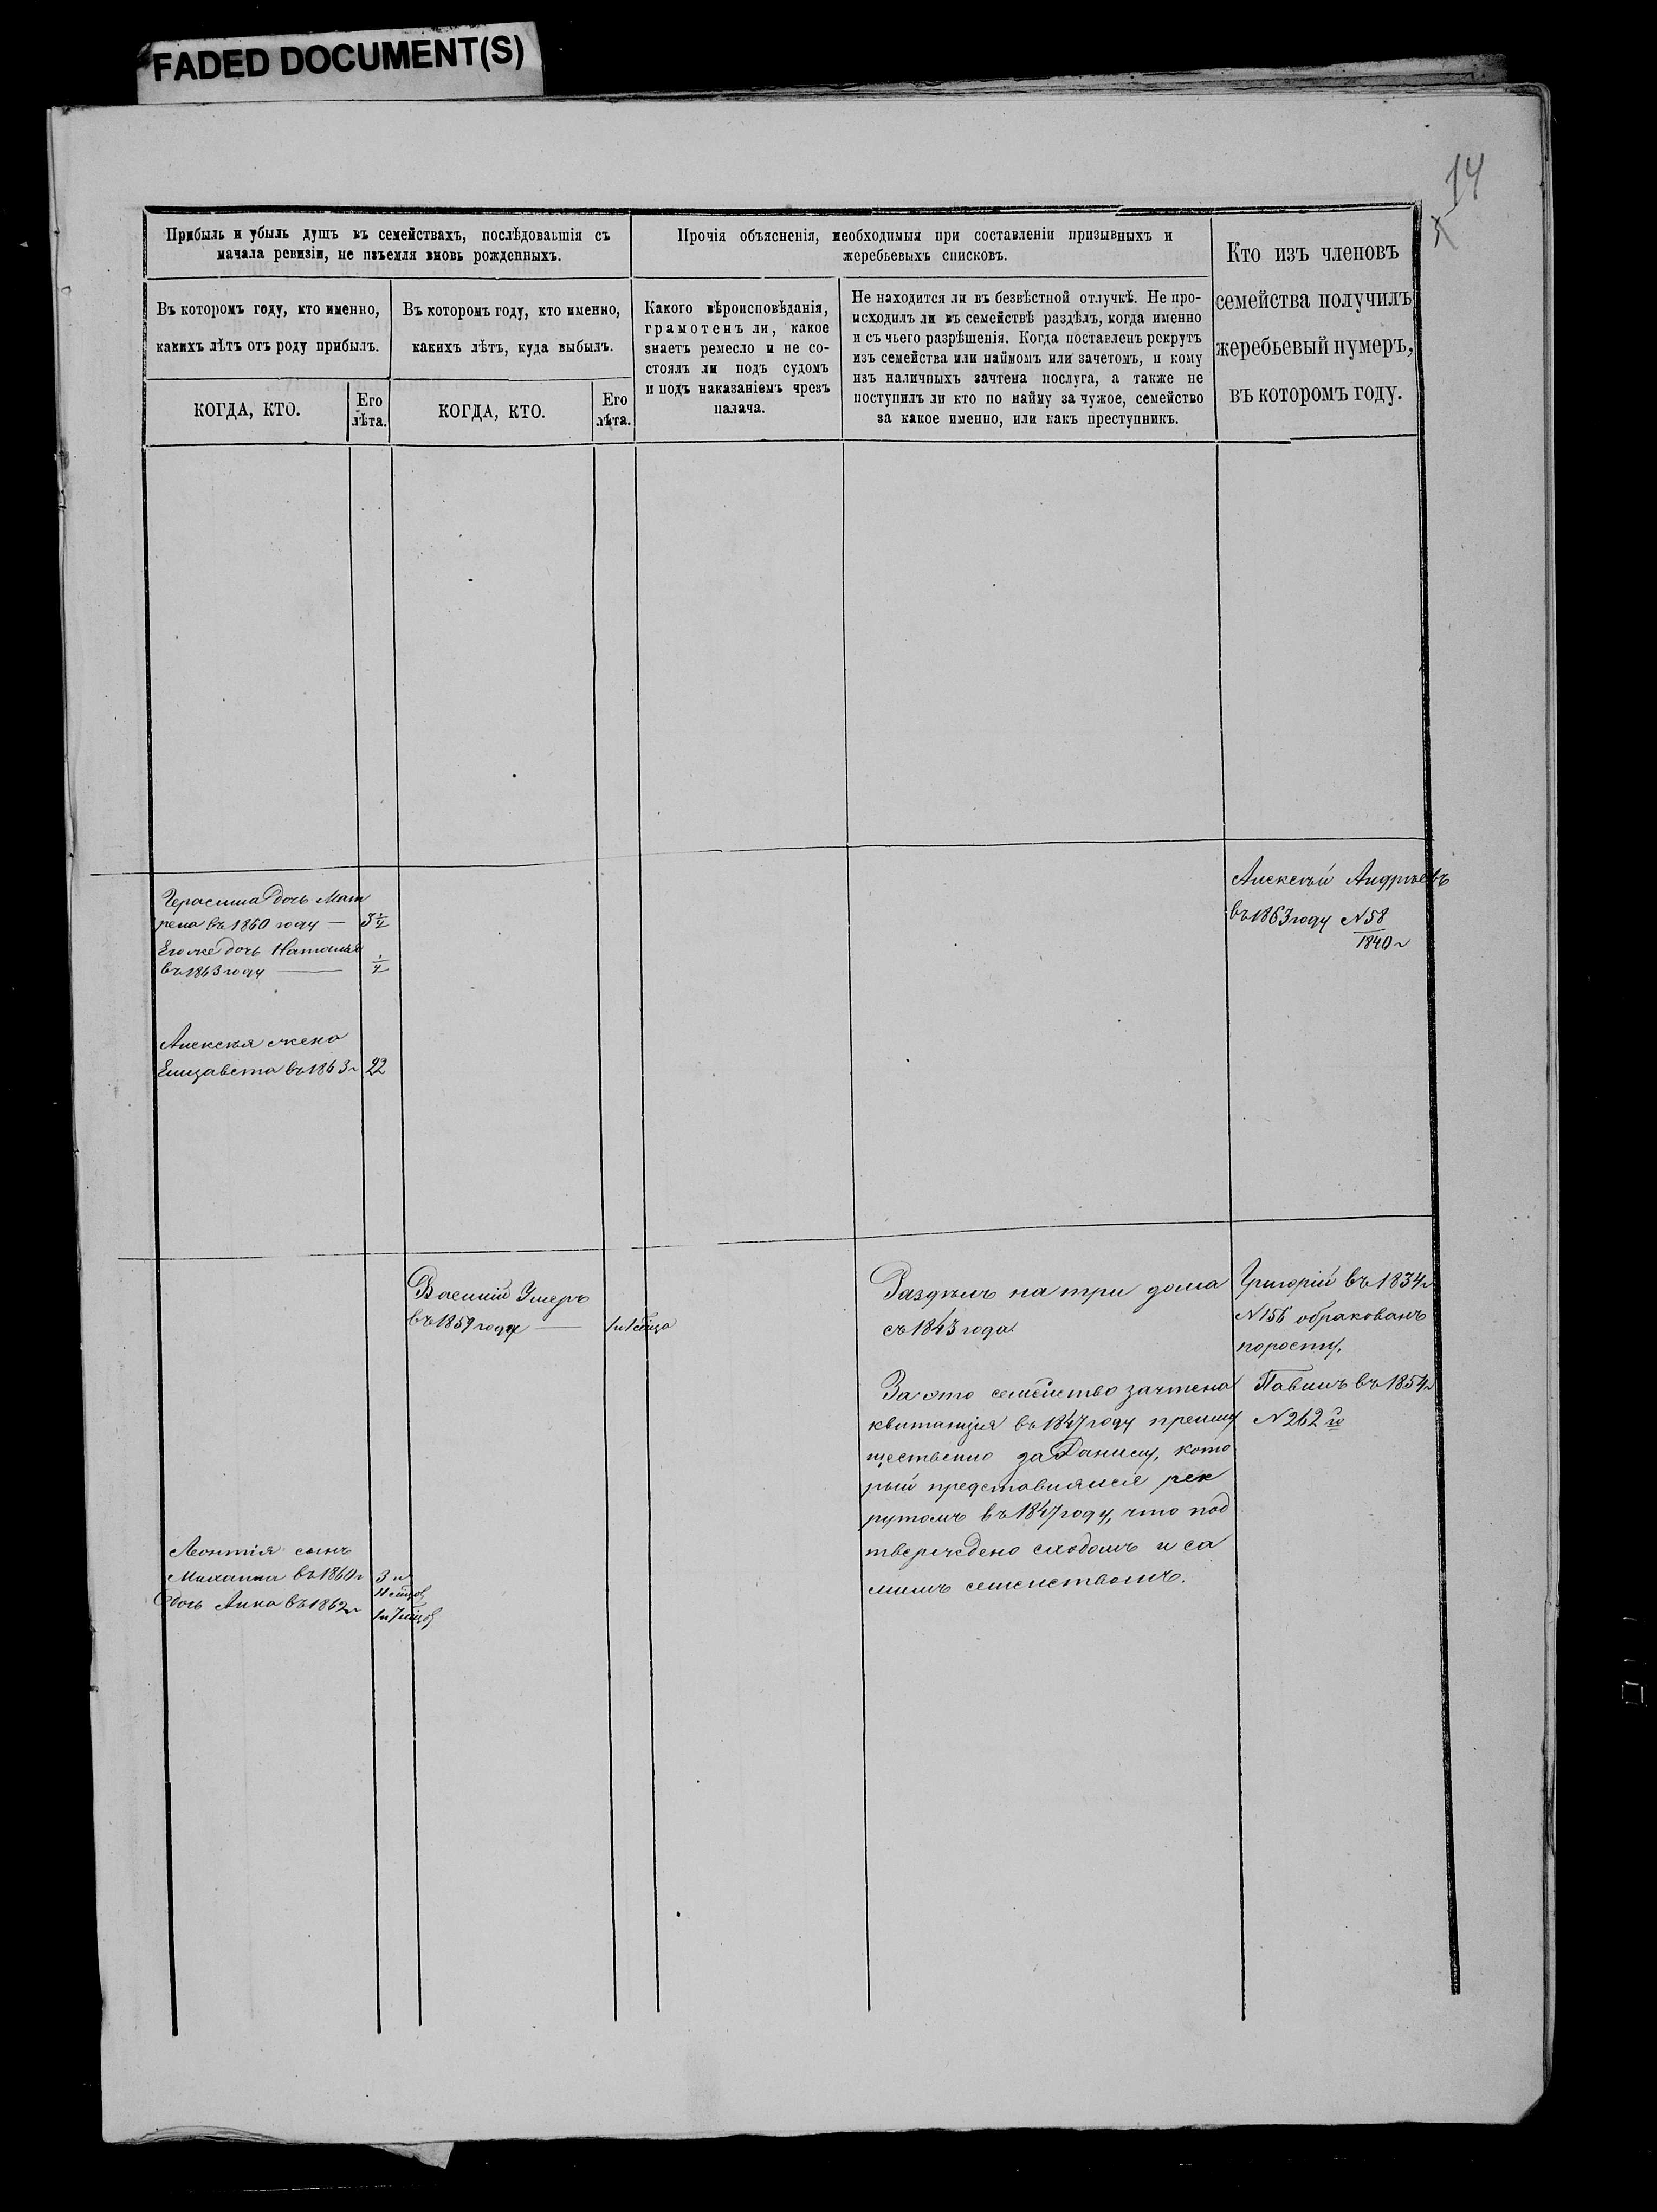 FADED DOCUMENT(S)
14
Прибыль и убыль душъ въ семействахъ, послѣдовавшія съ
начала ревизіи, не изъемля вновь рожденныхъ.
Въ которомъ году, кто именно,
какихъ лѣтъ отъ роду прибылъ.
КОГДА, КТО.
Его
лѣта.
Въ которомъ году, кто именно,
какихъ лѣтъ, куда выбылъ.
КОГДА, КТО.
Его
лѣта.
Прочія объясненія, необходимыя при составленіи призывныхъ и
жеребьевыхъ списковъ.
Какого вѣроисповѣданія,
грамотенъ ли, какое
знаетъ ремесло и не со-
стоялъ ли подъ судомъ
и подъ наказаніемъ чрезъ
палача.
Не находится ли въ безвѣстной отлучкѣ. Не про-
исходилъ ли въ семействѣ раздѣлъ, когда именно
и съ чьего разрѣшенія. Когда поставленъ рекрутъ
изъ семейства или наймомъ или зачетомъ, и кому
изъ наличныхъ зачтена послуга, а также не
поступилъ ли кто по найму за чужое, семейство
за какое именно, или какъ преступникъ.
Кто изъ членовъ
семейства получилъ
жеребьевый нумеръ,
въ которомъ году.
Герасима дочь Мат
рена въ 1860 году —
Его же дочь Наталья
въ 1863 году — 1/4
Алексѣя жена
Елизавета въ 1863 г 22
Алексѣй Андрѣевъ
въ 1863 году №58
1840 г
Василій Умеръ
въ 1859 году —
Раздѣлъ на три дома
съ 1843 года
За это семейство зачтена
квитанція въ 1847 году преиму
щественно за Данилу, кото
рый представлялся рек
рутомъ въ 1847 году, что под
тверждено сходомъ и са
мимъ семействомъ.
Григорій въ 1834 г
№156 обракованъ
поросту.
Павилъ въ 1854 г
№262й
Леонтія сынъ
Михаилъ въ 1860 г 3 и
11 мѣцов
Дочь Анна въ 1862 г 1 и 7 мѣцов